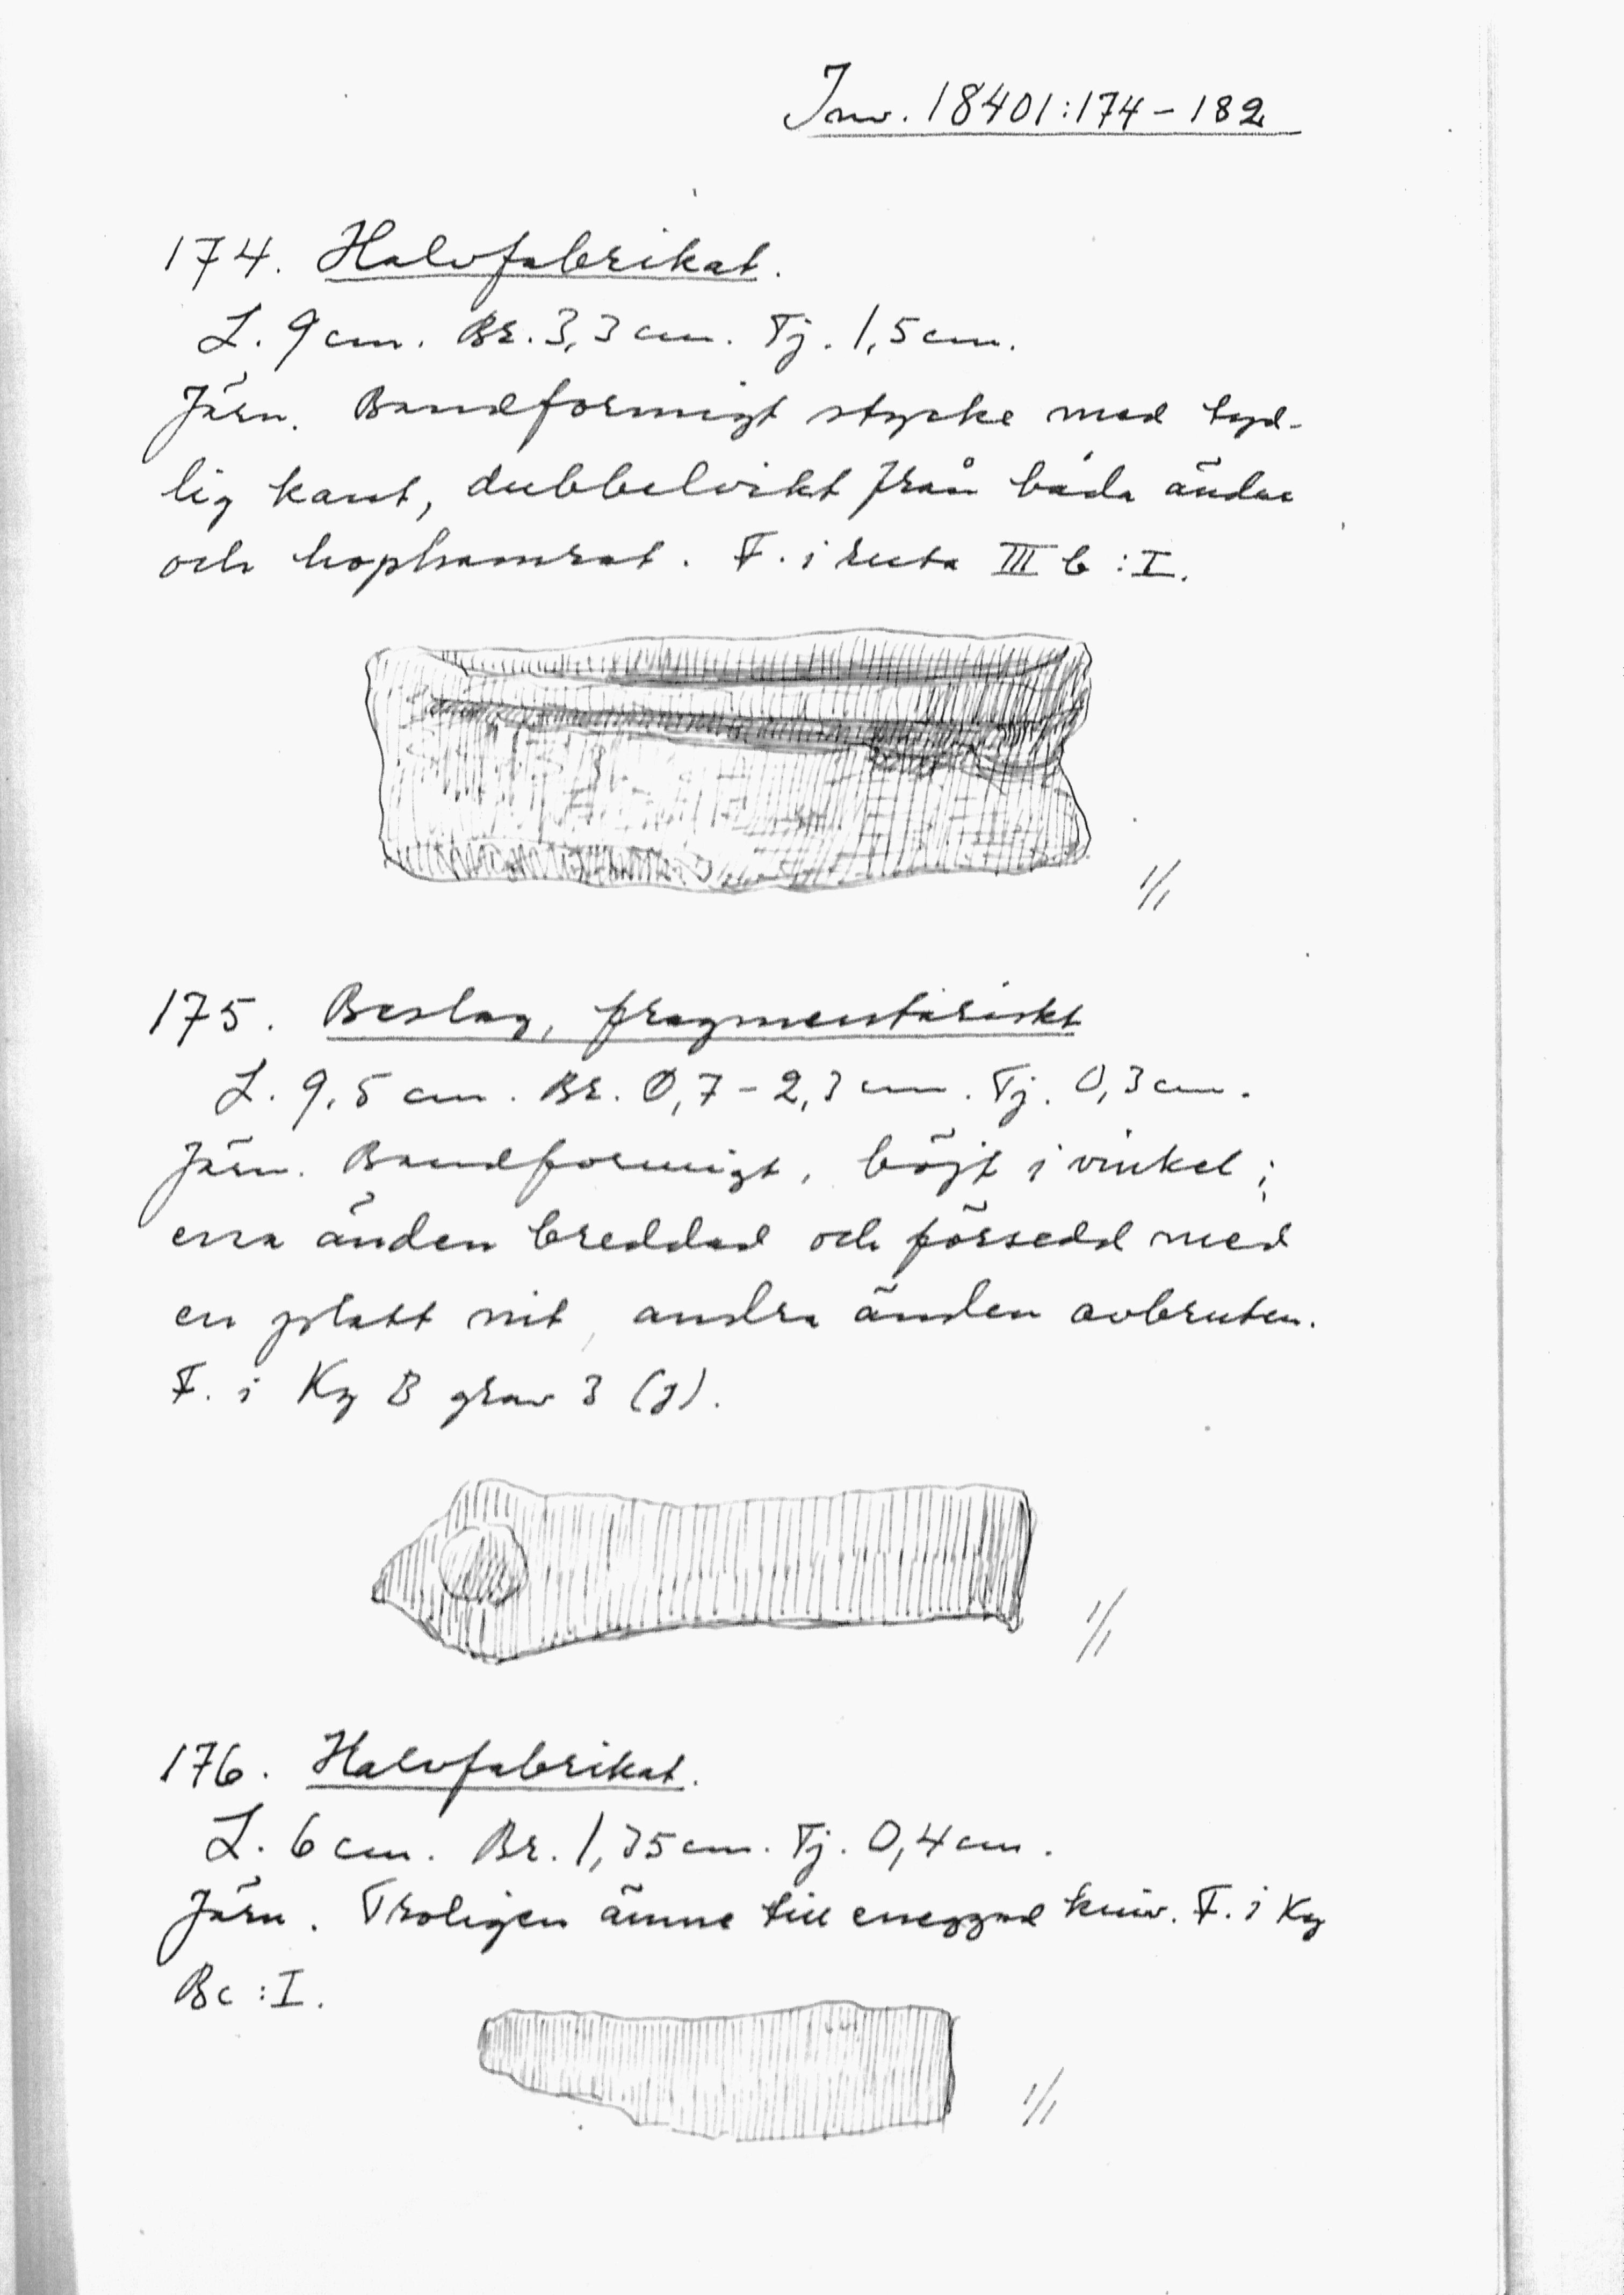 Inv. 18401:174-182
174. Halvfabrikat.
L. 9 cm. Br. 3,3 cm. Tj. 1,5 cm.
Järn. Bandformigt stycke med tyd-
lig kant, dubbelvikt från båda ändar
och hophamrat. F. i ruta III b:I.
1/1
175. Beslag, fragmentariskt
L. 9,5 cm. Br. 0,7-2,3 cm. Tj. 0,3 cm.
Järn. Bandformigt, böjt i vinkel;
ena änden breddad och försedd med
en platt nit, andra änden avbruten.
F. i Kg B grav 3 (j).
1/1
176. Halvfabrikat.
L. 6 cm. Br. 1,35 cm. Tj. 0,4 cm.
Järn. Troligen ämne till eneggad kniv. F. i Kg
Bc:I.
1/1